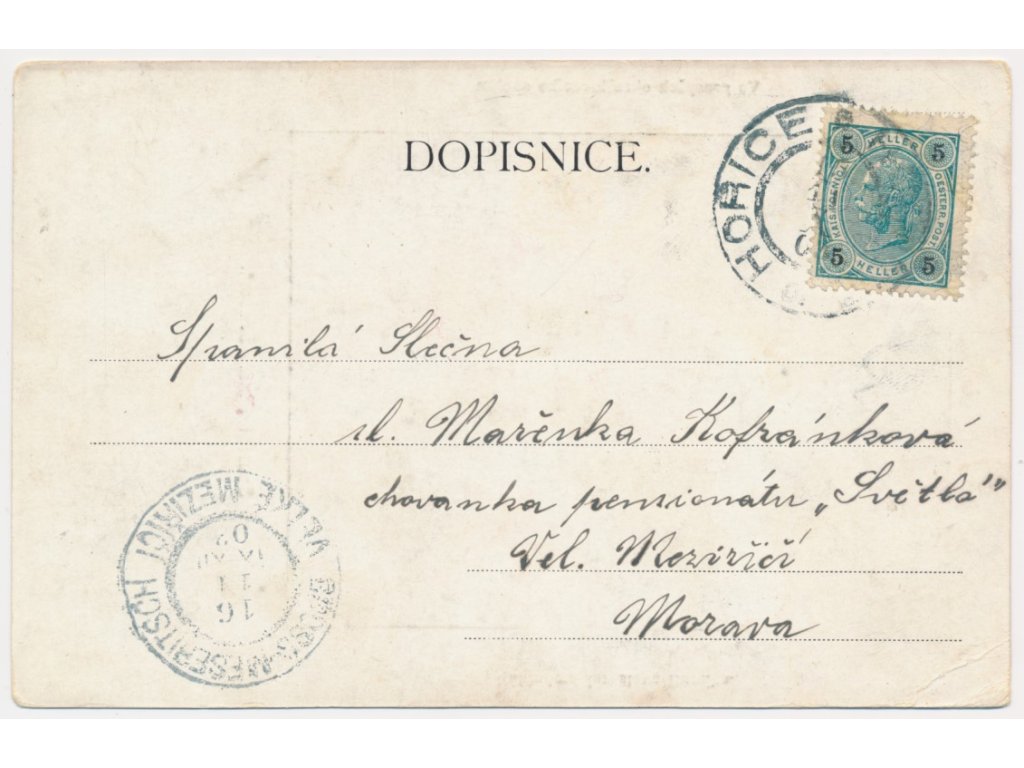 DOPISNICE.
HOŘICE
5 HELLER 5
KAIS. KOENIGL. OESTERR. POST.
5 HELLER 5
Spanilá Slečna
sl. Mařenka Kofránková
chovanka pensionátu „Světlá"
Vel. Meziříčí
Morava
GROSS-MESERITSCH VELKÉ MEZIŘÍČÍ
16
11
02